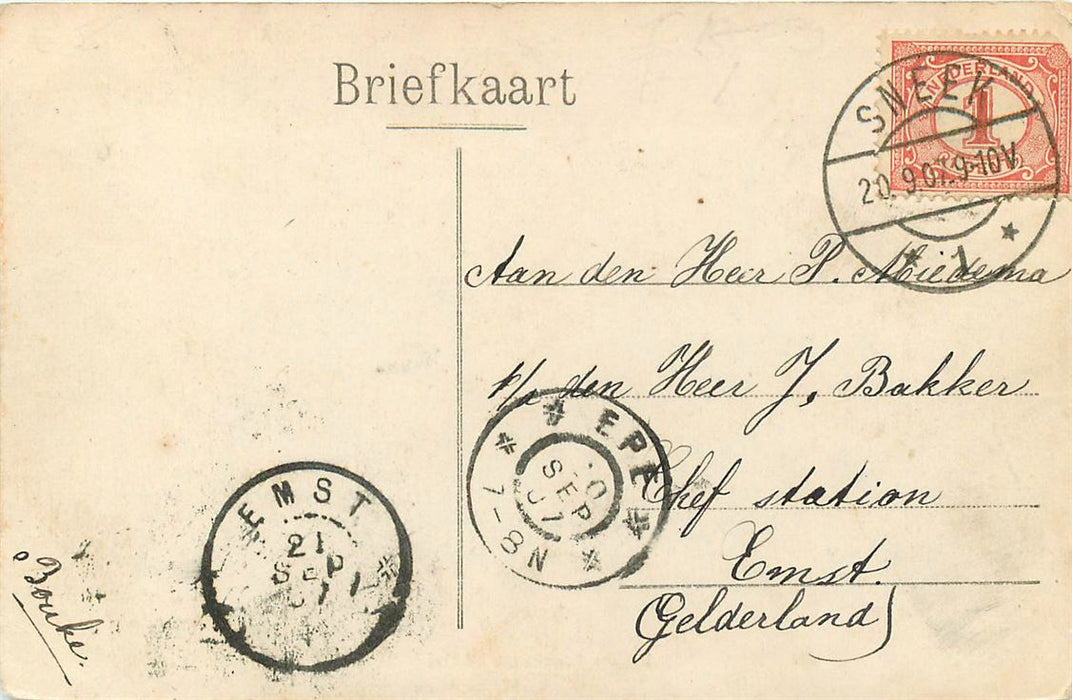 Briefkaart
NEDERLAND
1
SNEEK
20.9.07.9-10V
1
Aan den Heer P. Miedema
p/a den Heer J. Bakker
Chef station
Emst.
(Gelderland)
EPE
SEP
7-8N
EMST
21
SEP
Bouke.